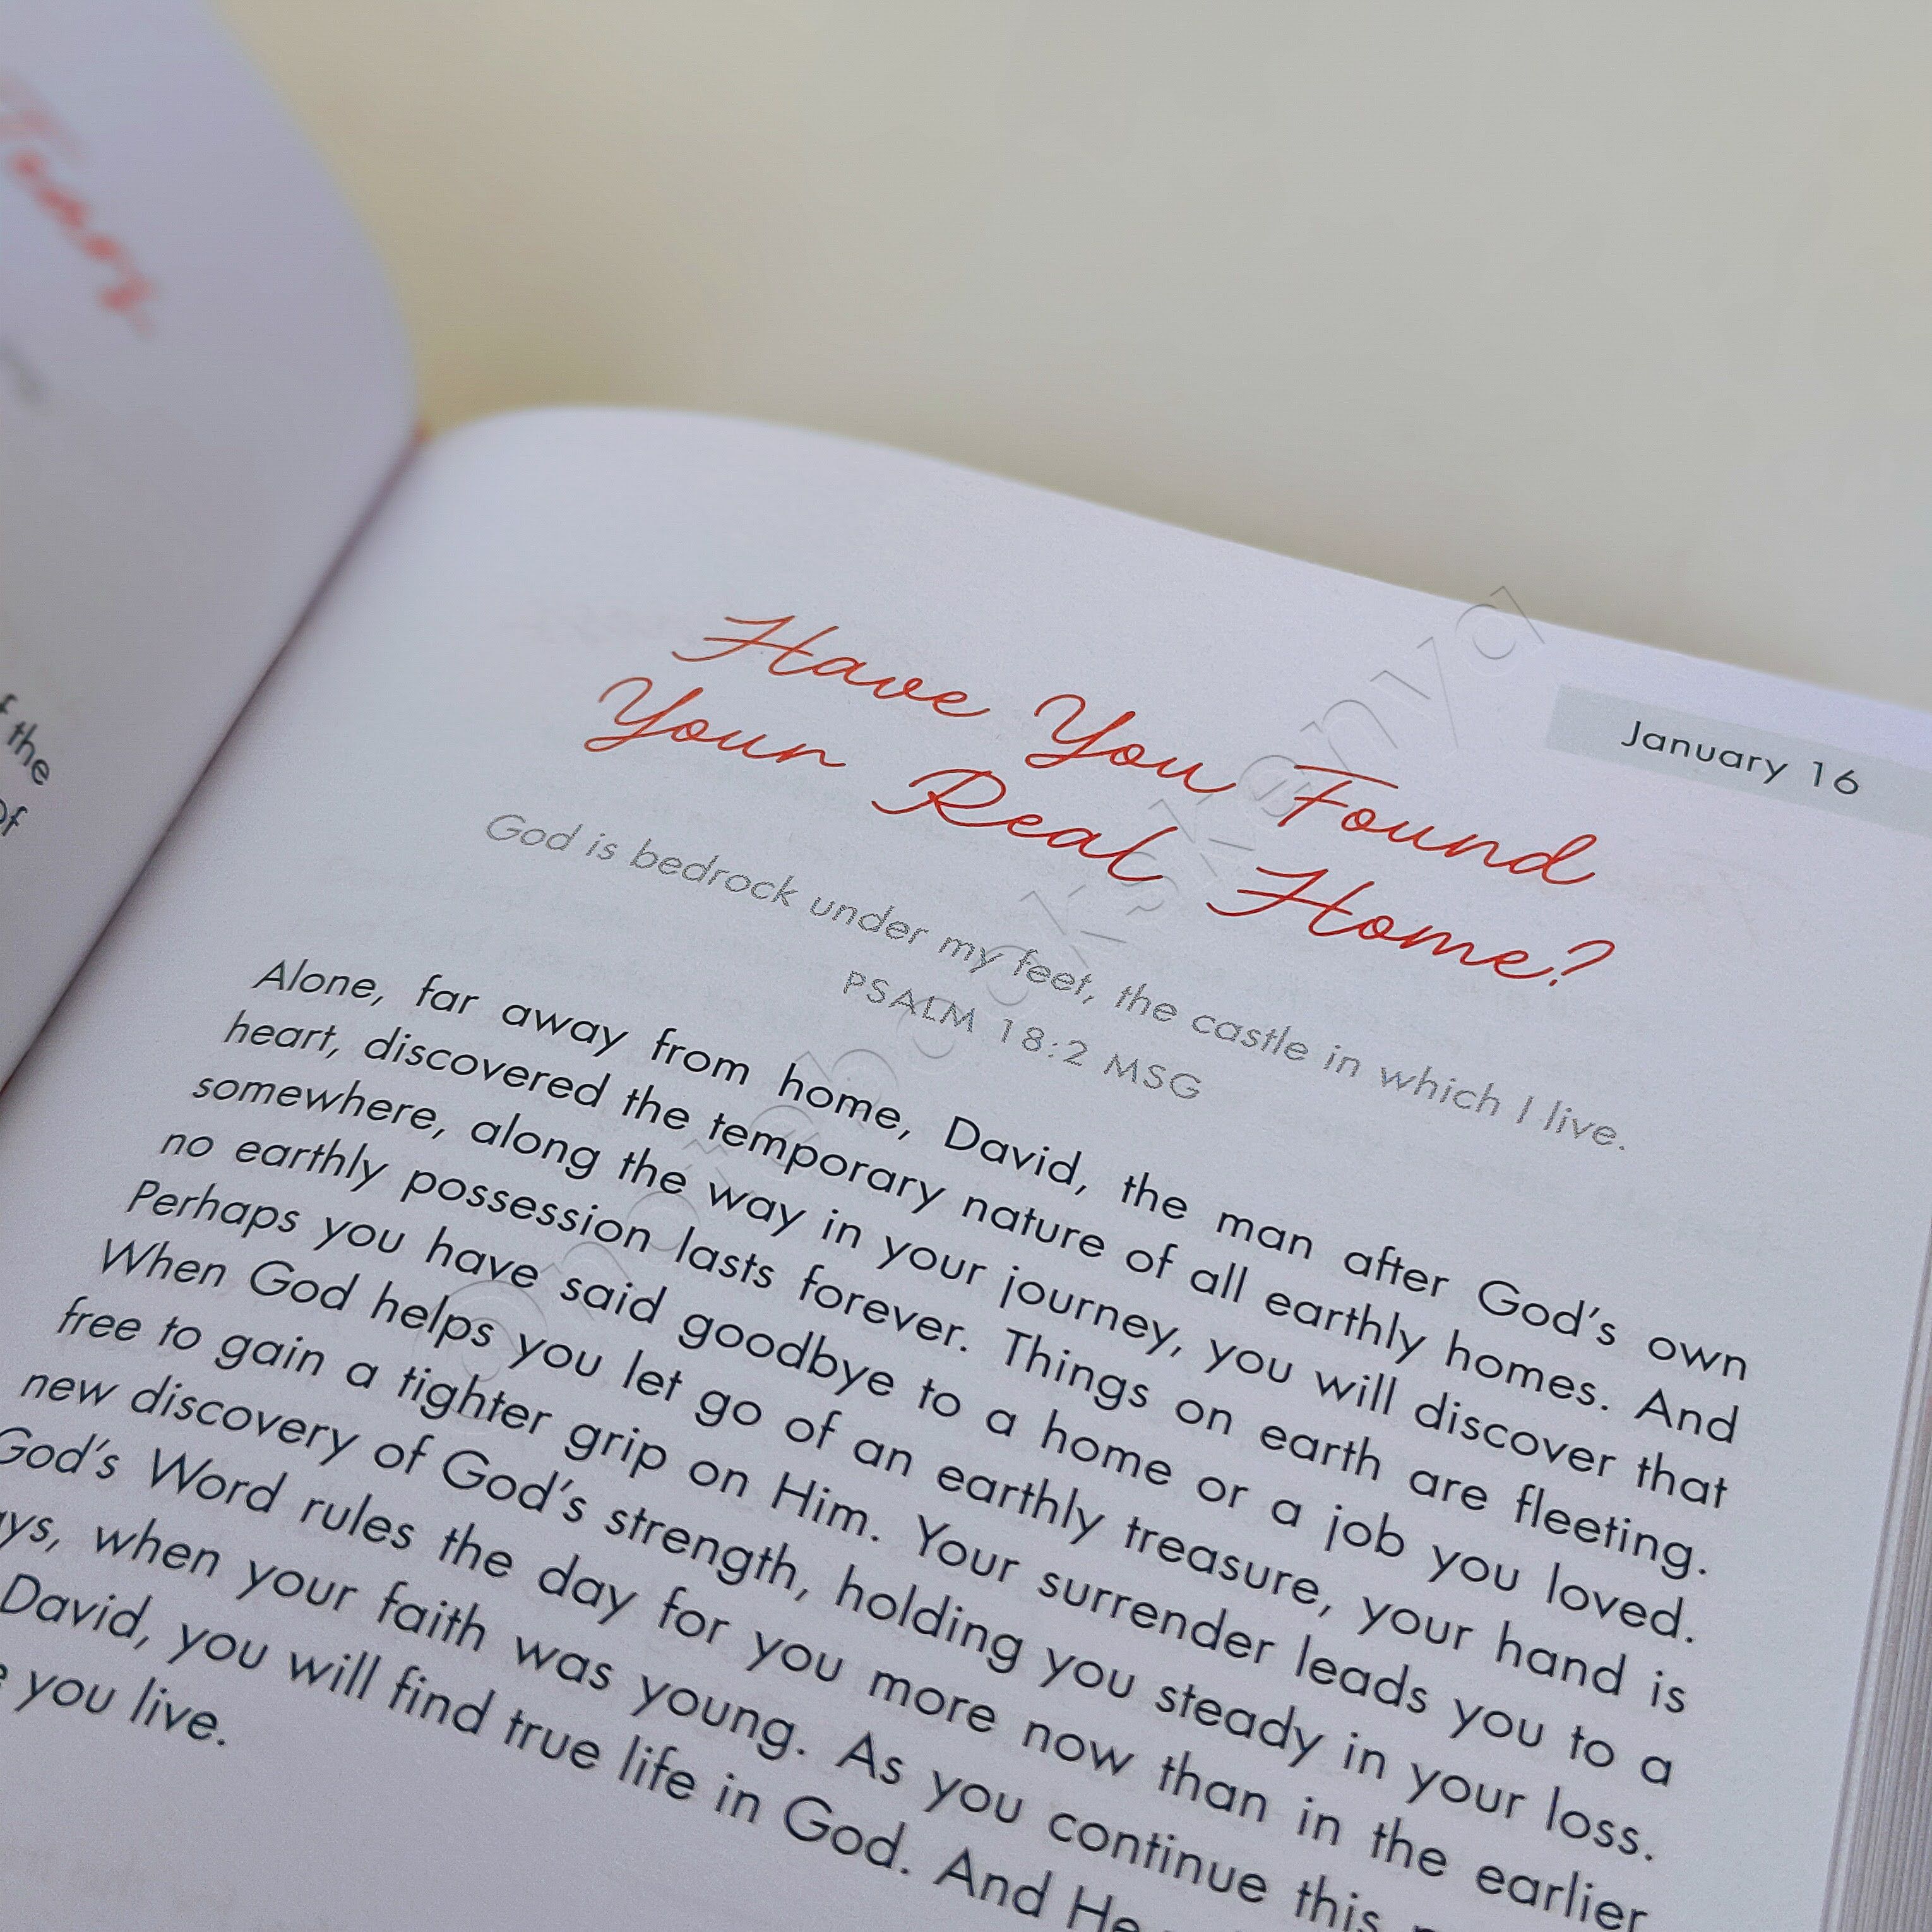 Today
f the
of
January 16
Have You Found
Your Real Home?
God is bedrock under my feet, the castle in which I live.
PSALM 18:2 MSG
Alone, far away from home, David, the man after God's own
heart, discovered the temporary nature of all earthly homes. And
somewhere, along the way in your journey, you will discover that
no earthly possession lasts forever. Things on earth are fleeting.
Perhaps you have said goodbye to a home or a job you loved.
When God helps you let go of an earthly treasure, your hand is
free to gain a tighter grip on Him. Your surrender leads you to a
new discovery of God's strength, holding you steady in your loss.
God's Word rules the day for you more now than in the earlier
when your faith was young. As you continue this
David, you will find true life in God. And He
you live.
@notebookskenya